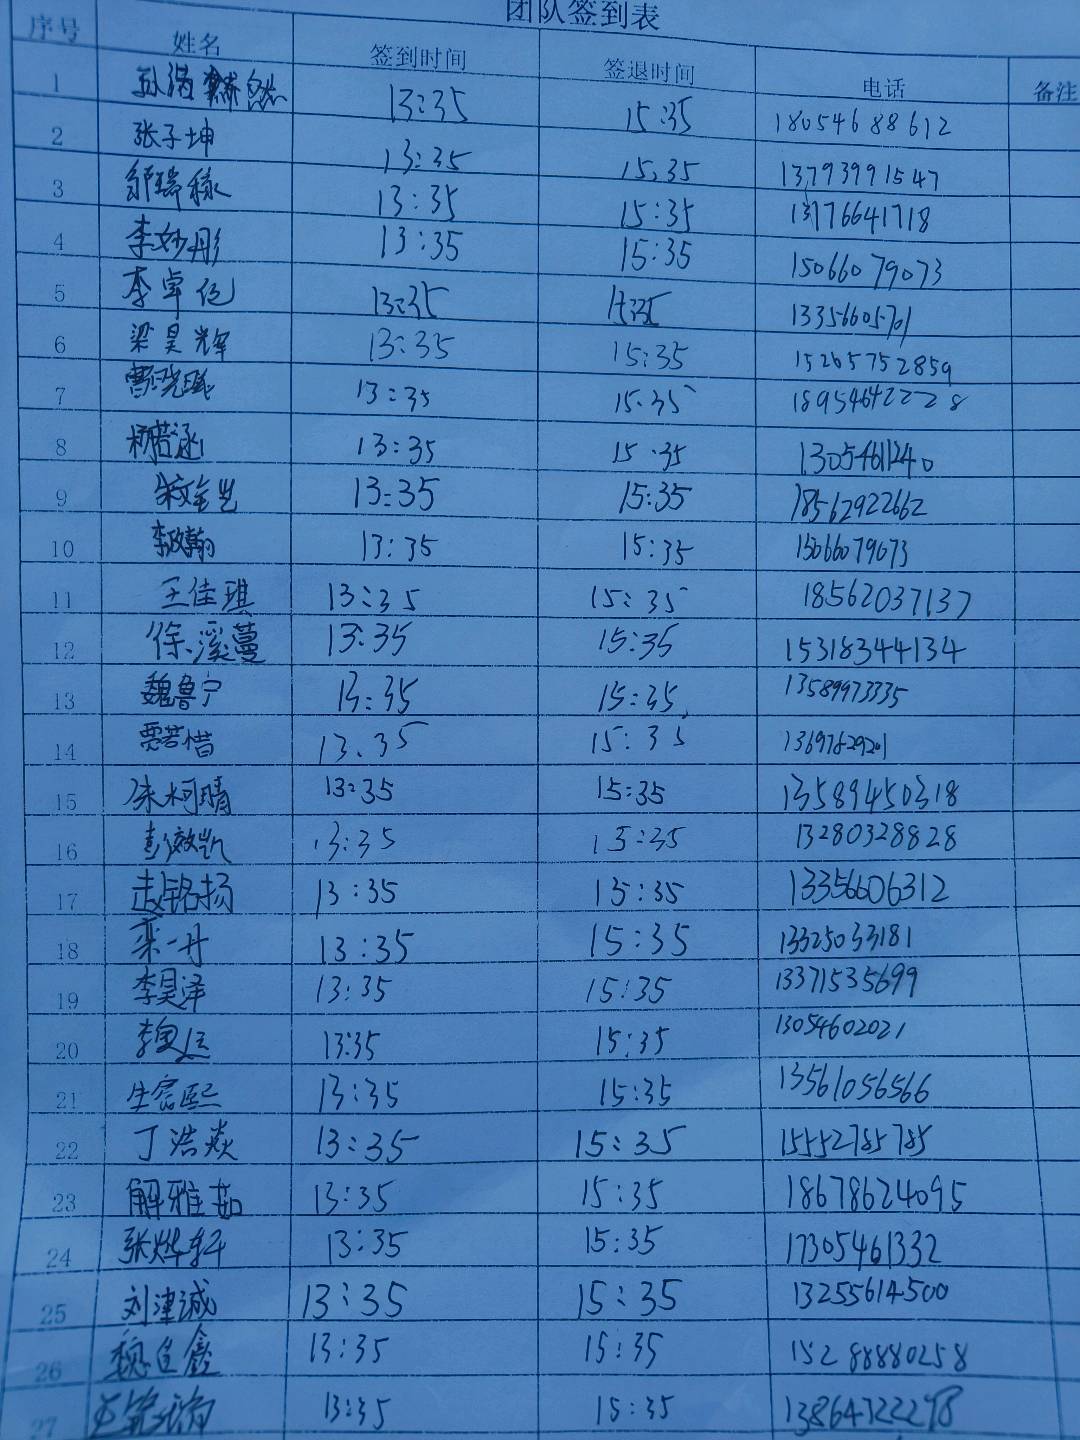 团队签到表
序号 姓名 签到时间 签退时间 电话 备注
1 13:35 15:35 18054688612
2 张子坤 13:35 15:35 13793991547
3 邹瑞稼 13:35 15:35 13176641718
4 李妙彤 13:35 15:35 15066079073
5 李卓伦 13:35 15:35 13356605701
6 梁昊辉 13:35 15:35 15265752859
7 13:35 15:35 18954642228
8 杨若涵 13:35 15:35 13054611240
9 13:35 15:35 18562922662
10 13:35 15:35 15066079073
11 王佳琪 13:35 15:35 18562037137
12 徐溪蔓 13:35 15:35 15318344134
13 魏鲁宁 13:35 15:35 13589973335
14 贾若惜 13.35 15:35 13697829201
15 13:35 15:35 13589450318
16 彭傲凯 13:35 15:35 13280328828
17 赵铭扬 13:35 15:35 13356606312
18 栾一丹 13:35 15:35 13325033181
19 李昊泽 13:35 15:35 13371535699
20 13:35 15:35 13054602021
21 生宸熙 13:35 15:35 13561056566
22 丁浩焱 13:35 15:35 15552785785
23 解雅茹 13:35 15:35 18678624095
24 张烨轩 13:35 15:35 17305461332
25 刘津诚 13:35 15:35 13255614500
26 魏 鑫 13:35 15:35 15288880258
27 13:35 15:35